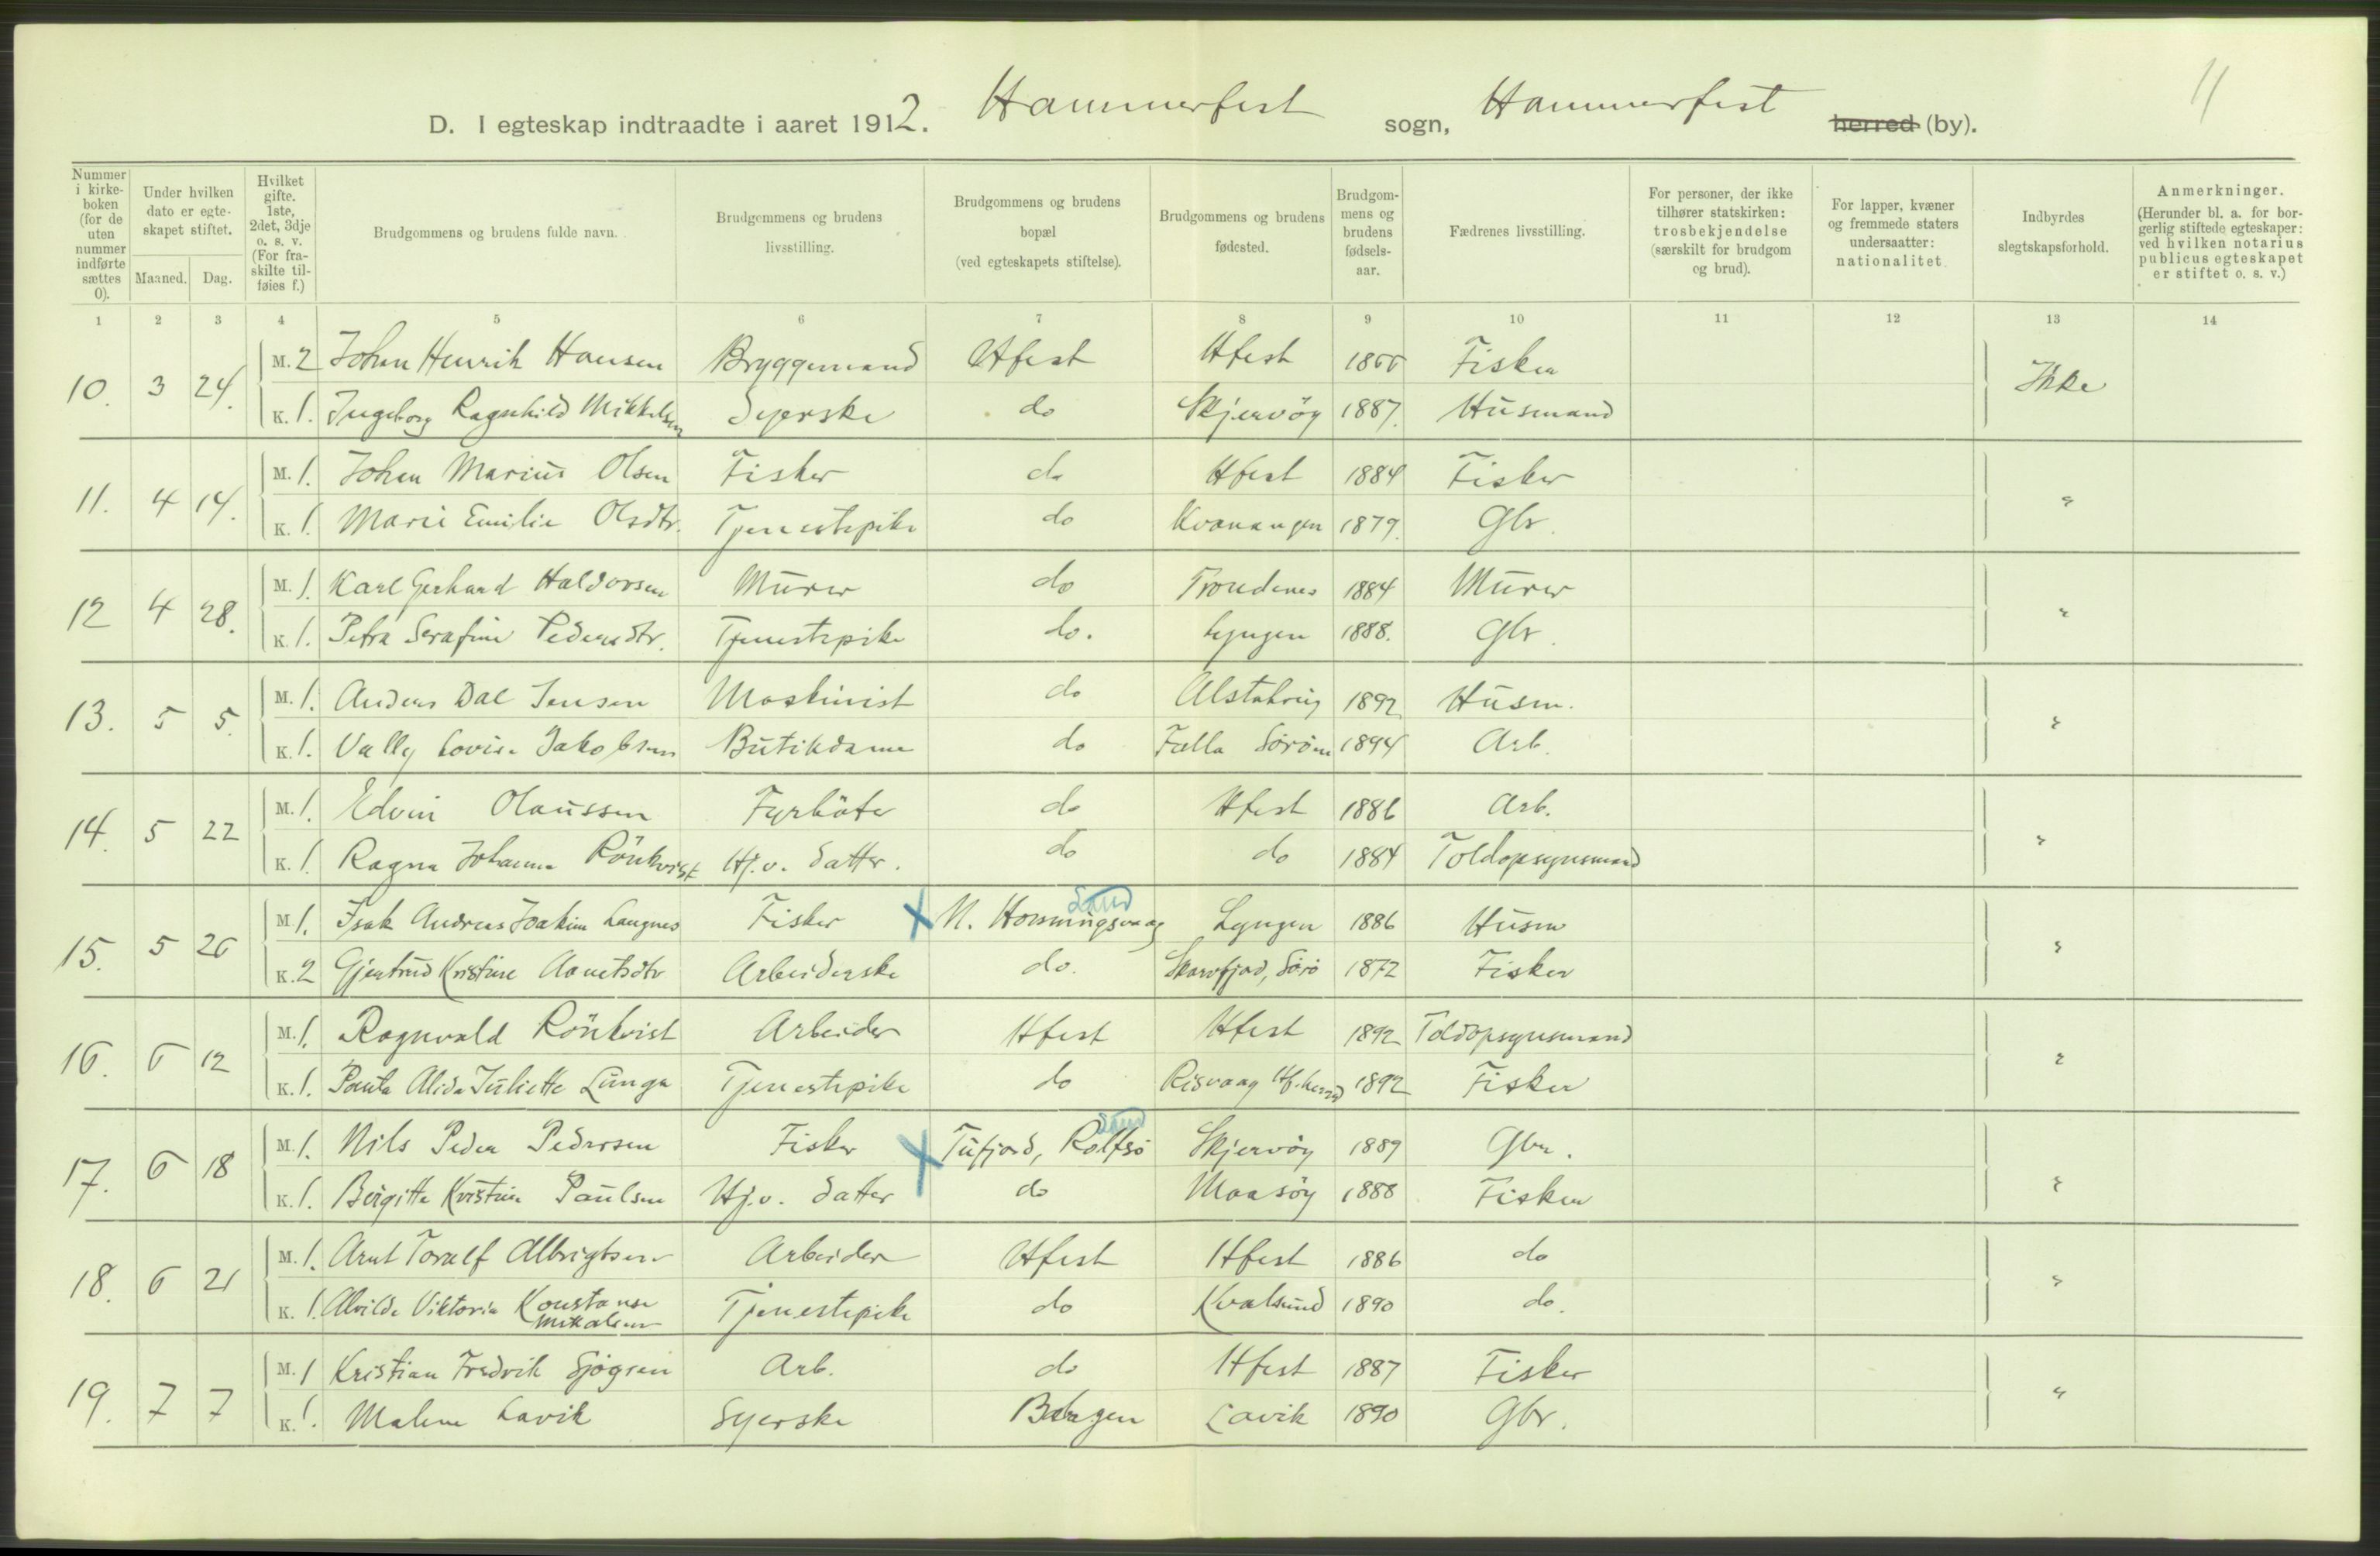 11
D. I egteskap indtraadte i aaret 1912. Hammerfest sogn, Hammerfest herred (by).
Nummer i kirkeboken (for de uten nummer indførte sættes 0).
Under hvilken dato er egteskapet stiftet.
Maaned. Dag.
Hvilket gifte. 1ste, 2det, 3dje o. s. v. (For fraskilte tilføies f.)
Brudgommens og brudens fulde navn.
Brudgommens og brudens livsstilling.
Brudgommens og brudens bopæl (ved egteskapets stiftelse).
Brudgommens og brudens fødested.
Brudgommens og brudens fødselsaar.
Fædrenes livsstilling.
For personer, der ikke tilhører statskirken: trosbekjendelse (særskilt for brudgom og brud).
For lapper, kvæner og fremmede staters undersaatter: nationalitet.
Indbyrdes slegtskapsforhold.
Anmerkninger. (Herunder bl. a. for borgerlig stiftede egteskaper: ved hvilken notarius publicus egteskapet er stiftet o. s. v.)
1 2 3 4 5 6 7 8 9 10 11 12 13 14
10. 3 24. M. 2 Johan Henrik Hansen Bryggemand Hfest Hfest 1866 Fisker Ikke
K. 1. Ingeborg Ragnhild Mikkelsen Syerske do Skjervöy 1887. Husmand
11. 4 14. M. 1. Johan Marius Olsen Fisker do Hfest 1884 Fisker "
K. 1. Marie Emilie Olsdtr. Tjenestepike do Kvænangen 1879. Gbr.
12 4 28. M. 1. Karl Gerhard Haldorsen Murer do Trondenes 1884 Murer "
K. 1. Petra Serafine Pedersdtr. Tjenestepike do. Lyngen 1888. Gbr.
13. 5 5. M. 1. Anders Dal Jensen Maskinist do Alstahoug 1892 Husm. "
K. 1. Vally Lovise Jakobsen Butikdame do Falla Söröen 1894 Arb.
14. 5 22 M. 1. Edvin Olaussen Fyrböter do Hfest 1886 Arb. "
K. 1. Ragna Johanne Rönkvist Hj.v. datter. do do 1884 Toldopsynsmand
15. 5 26 M. 1. Isak Andreas Joakim Langnes Fisker X N. Honningsvaag Sand Lyngen 1886 Husm "
K. 2 Gjertrud Kristine Aanetsdtr Arbeiderske do. Skarvfjord, Sörö 1872 Fisker
16. 6 12 M. 1. Ragnvald Rönkvist Arbeider Hfest Hfest 1892 Toldopsynsmand "
K. 1. Paula Alida Juliette Lunga Tjenestepike do Risvaag Hf. herred 1892 Fisker
17. 6 18 M. 1. Nils Peder Pedersen Fisker X Tufjord, Rolfsö Sand Skjervöy 1889 Gbr. "
K. 1. Birgitte Kristine Paulsen Hj.v. datter do Maasöy 1888 Fisker
18. 6 21 M. 1. Arnt Toralf Albrigtsen Arbeider Hfest Hfest 1886 do "
K. 1. Alvilde Viktoria Konstanse Mikalsen Tjenestepike do Kvalsund 1890 do.
19. 7 7 M. 1 Kristian Fredrik Sjögren Arb. do Hfest 1887 Fisker "
K. 1. Malene Lavik Syerske Bergen Lavik 1890 Gbr.